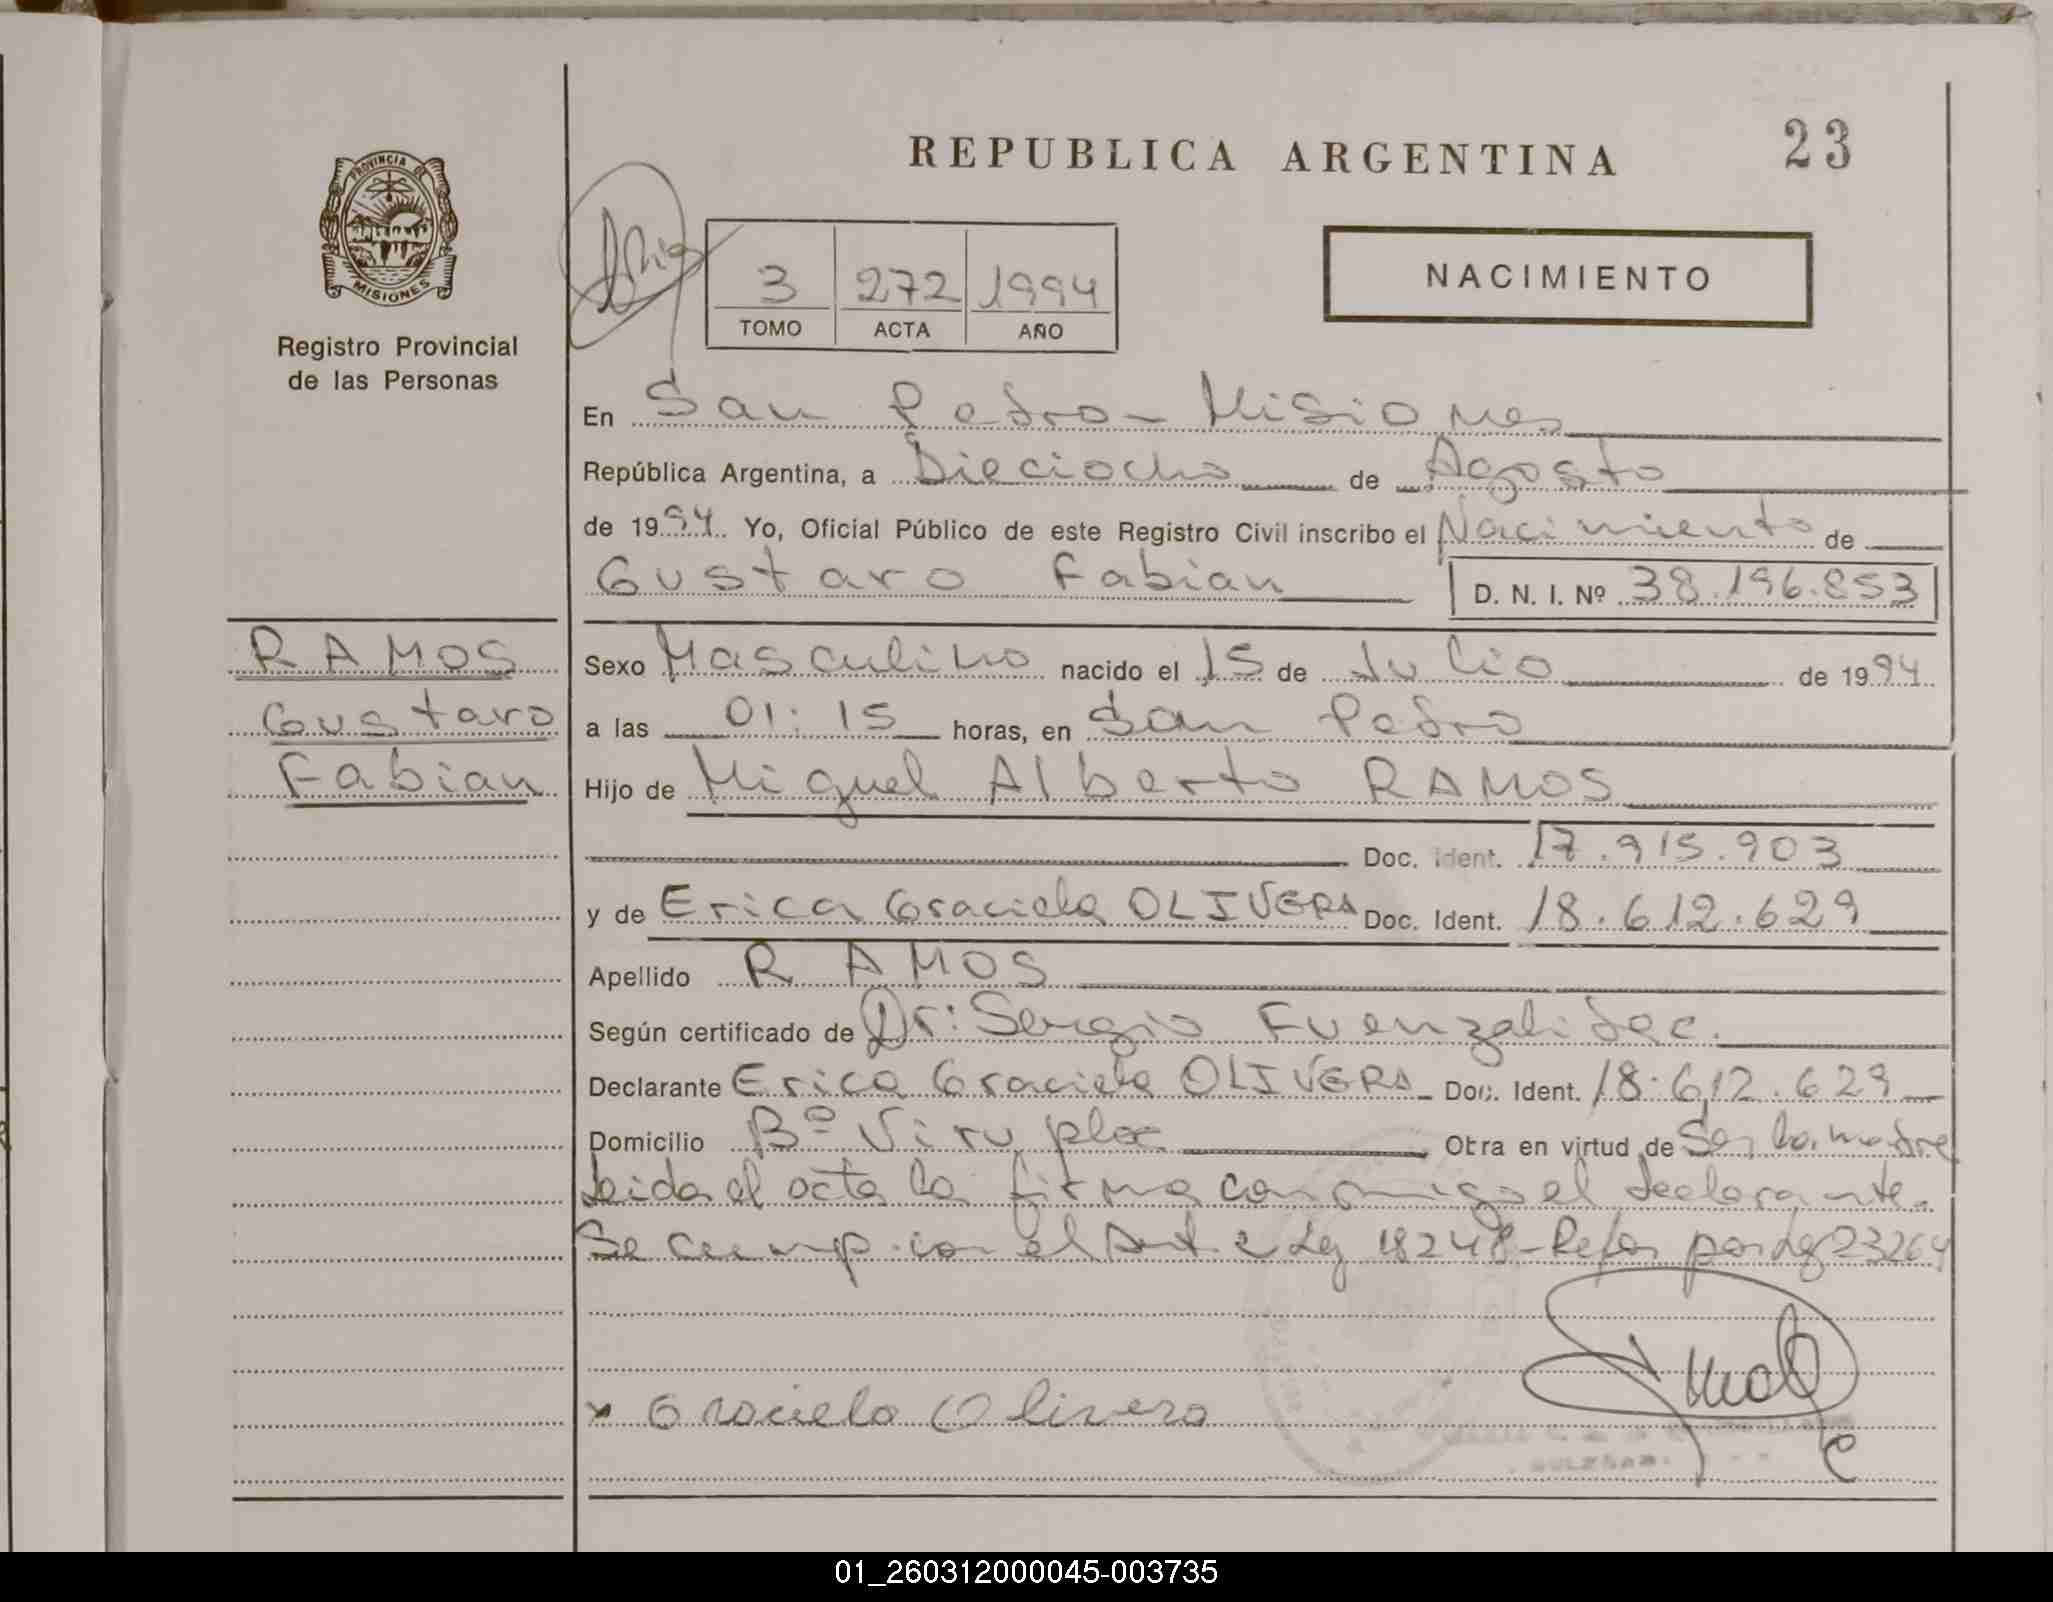 REPUBLICA ARGENTINA
23
PROVINCIA DE
MISIONES
Registro Provincial
de las Personas
3 272 1994
TOMO ACTA AÑO
NACIMIENTO
En San Pedro - Misiones
República Argentina, a Dieciocho de Agosto
de 1994. Yo, Oficial Público de este Registro Civil inscribo el Nacimiento de
Gustavo Fabian D. N. I. Nº 38.196.853
RAMOS
Gustavo
Fabian
Sexo Masculino nacido el 15 de Julio de 1994
a las 01:15 horas, en San Pedro
Hijo de Miguel Alberto RAMOS
Doc. Ident. 17.915.903
y de Erica Graciela OLIVERA Doc. Ident. 18.612.629
Apellido RAMOS
Según certificado de Dr: Sergio Fuenzalida
Declarante Erica Graciela OLIVERA Doc. Ident. 18.612.629
Domicilio Bº Otra en virtud de Ser la madre
Leida el acta la firma conmigo el declarante.
Se cumplio con el Art 2 Ley 18248 - Refor por Ley 23264
x Graciela Olivera
01_260312000045-003735